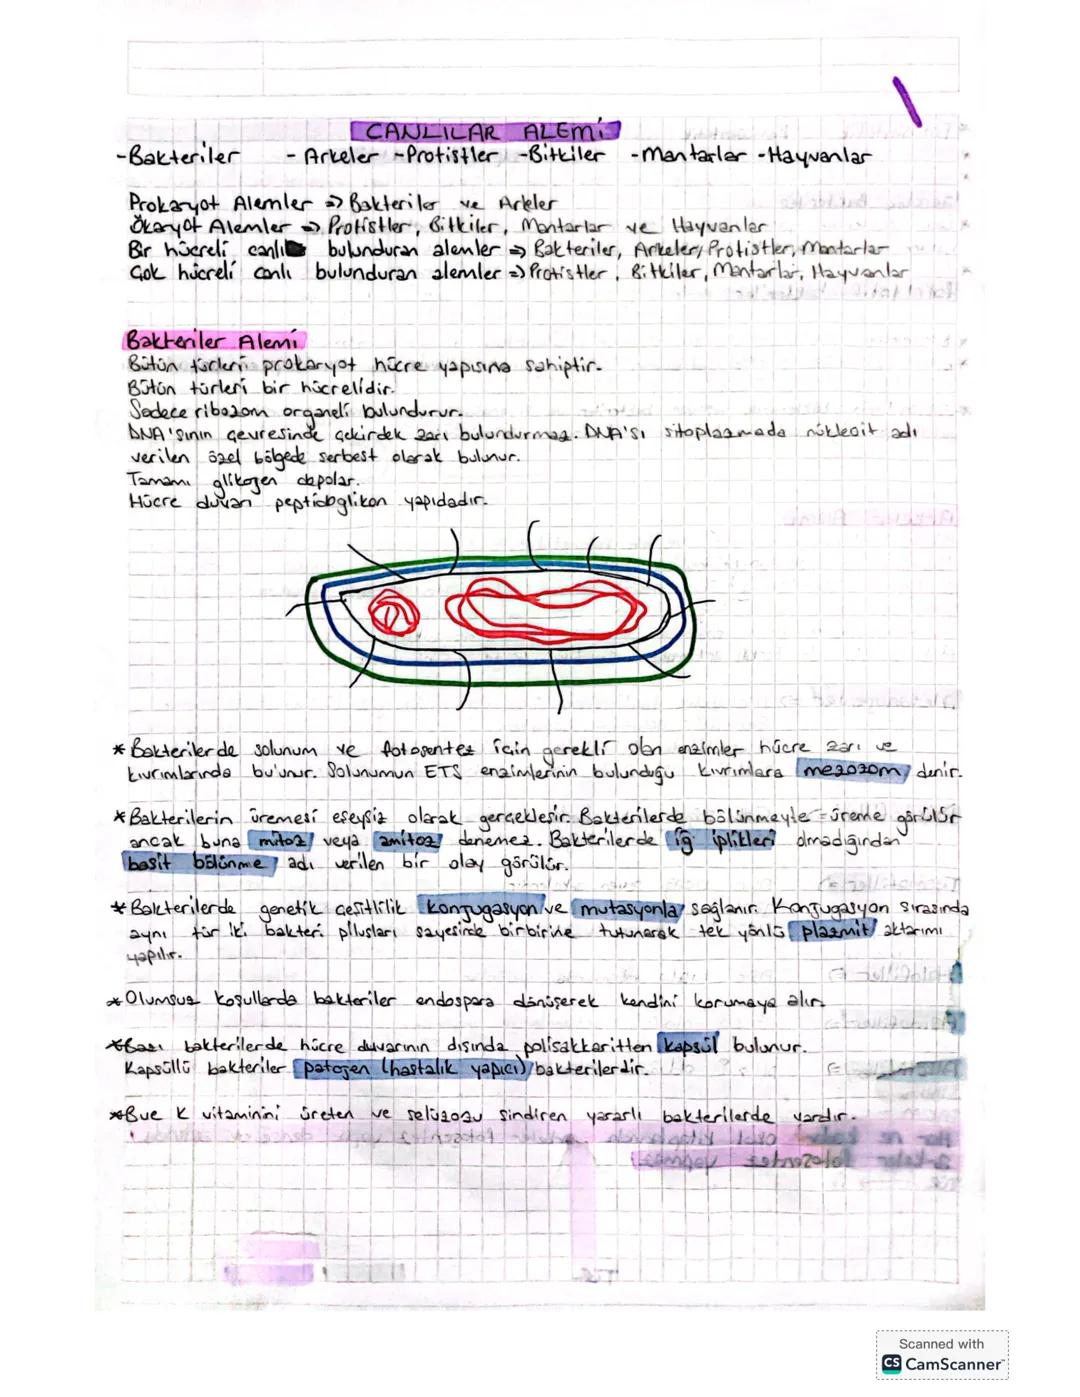 CANLILAR ALEMİ
-Bakteriler - Arkeler -Protistler -Bitkiler -Mantarlar -Hayvanlar
Prokaryot Alemler => Bakteriler ve Arkeler
Ökaryot Alemler => Protistler, Bitkiler, Mantarlar ve Hayvanlar
Bir hücreli canlı bulunduran alemler => Bakteriler, Arkeler, Protistler, Mantarlar
Çok hücreli canlı bulunduran alemler => Protistler, Bitkiler, Mantarlar, Hayvanlar
Bakteriler Alemi
Bütün türleri prokaryot hücre yapısına sahiptir.
Bütün türleri bir hücrelidir.
Sadece ribozom organeli bulundurur.
DNA'sının çevresinde çekirdek zarı bulundurmaz. DNA'sı sitoplazmada nükleoit adı
verilen özel bölgede serbest olarak bulunur.
Tamamı glikojen depolar.
Hücre duvarı peptidoglikan yapıdadır.
* Bakterilerde solunum ve fotosentez için gerekli olan enzimler hücre zarı ve
kıvrımlarında bu'unur. Solunumun ETS enzimlerinin bulunduğu kıvrımlara mezozom denir.
* Bakterilerin üremesi eşeysiz olarak gerçekleşir. Bakterilerde bölünmeyle üreme görülür
ancak buna mitoz veya amitoz denemez. Bakterilerde iğ iplikleri olmadığından
basit bölünme adı verilen bir olay görülür.
* Bakterilerde genetik çeşitlilik konjugasyon ve mutasyonla sağlanır. Konjugasyon sırasında
aynı tür iki bakteri pilusları sayesinde birbirine tutunarak tek yönlü plazmit aktarımı
yapılır.
* Olumsuz koşullarda bakteriler endospora dönüşerek kendini korumaya alır.
* Bazı bakterilerde hücre duvarının dışında polisakkaritten kapsül bulunur.
Kapsüllü bakteriler patojen (hastalık yapıcı) bakterilerdir.
* B ve K vitaminini üreten ve selülozu sindiren yararlı bakterilerde vardır.
Scanned with
CS CamScanner